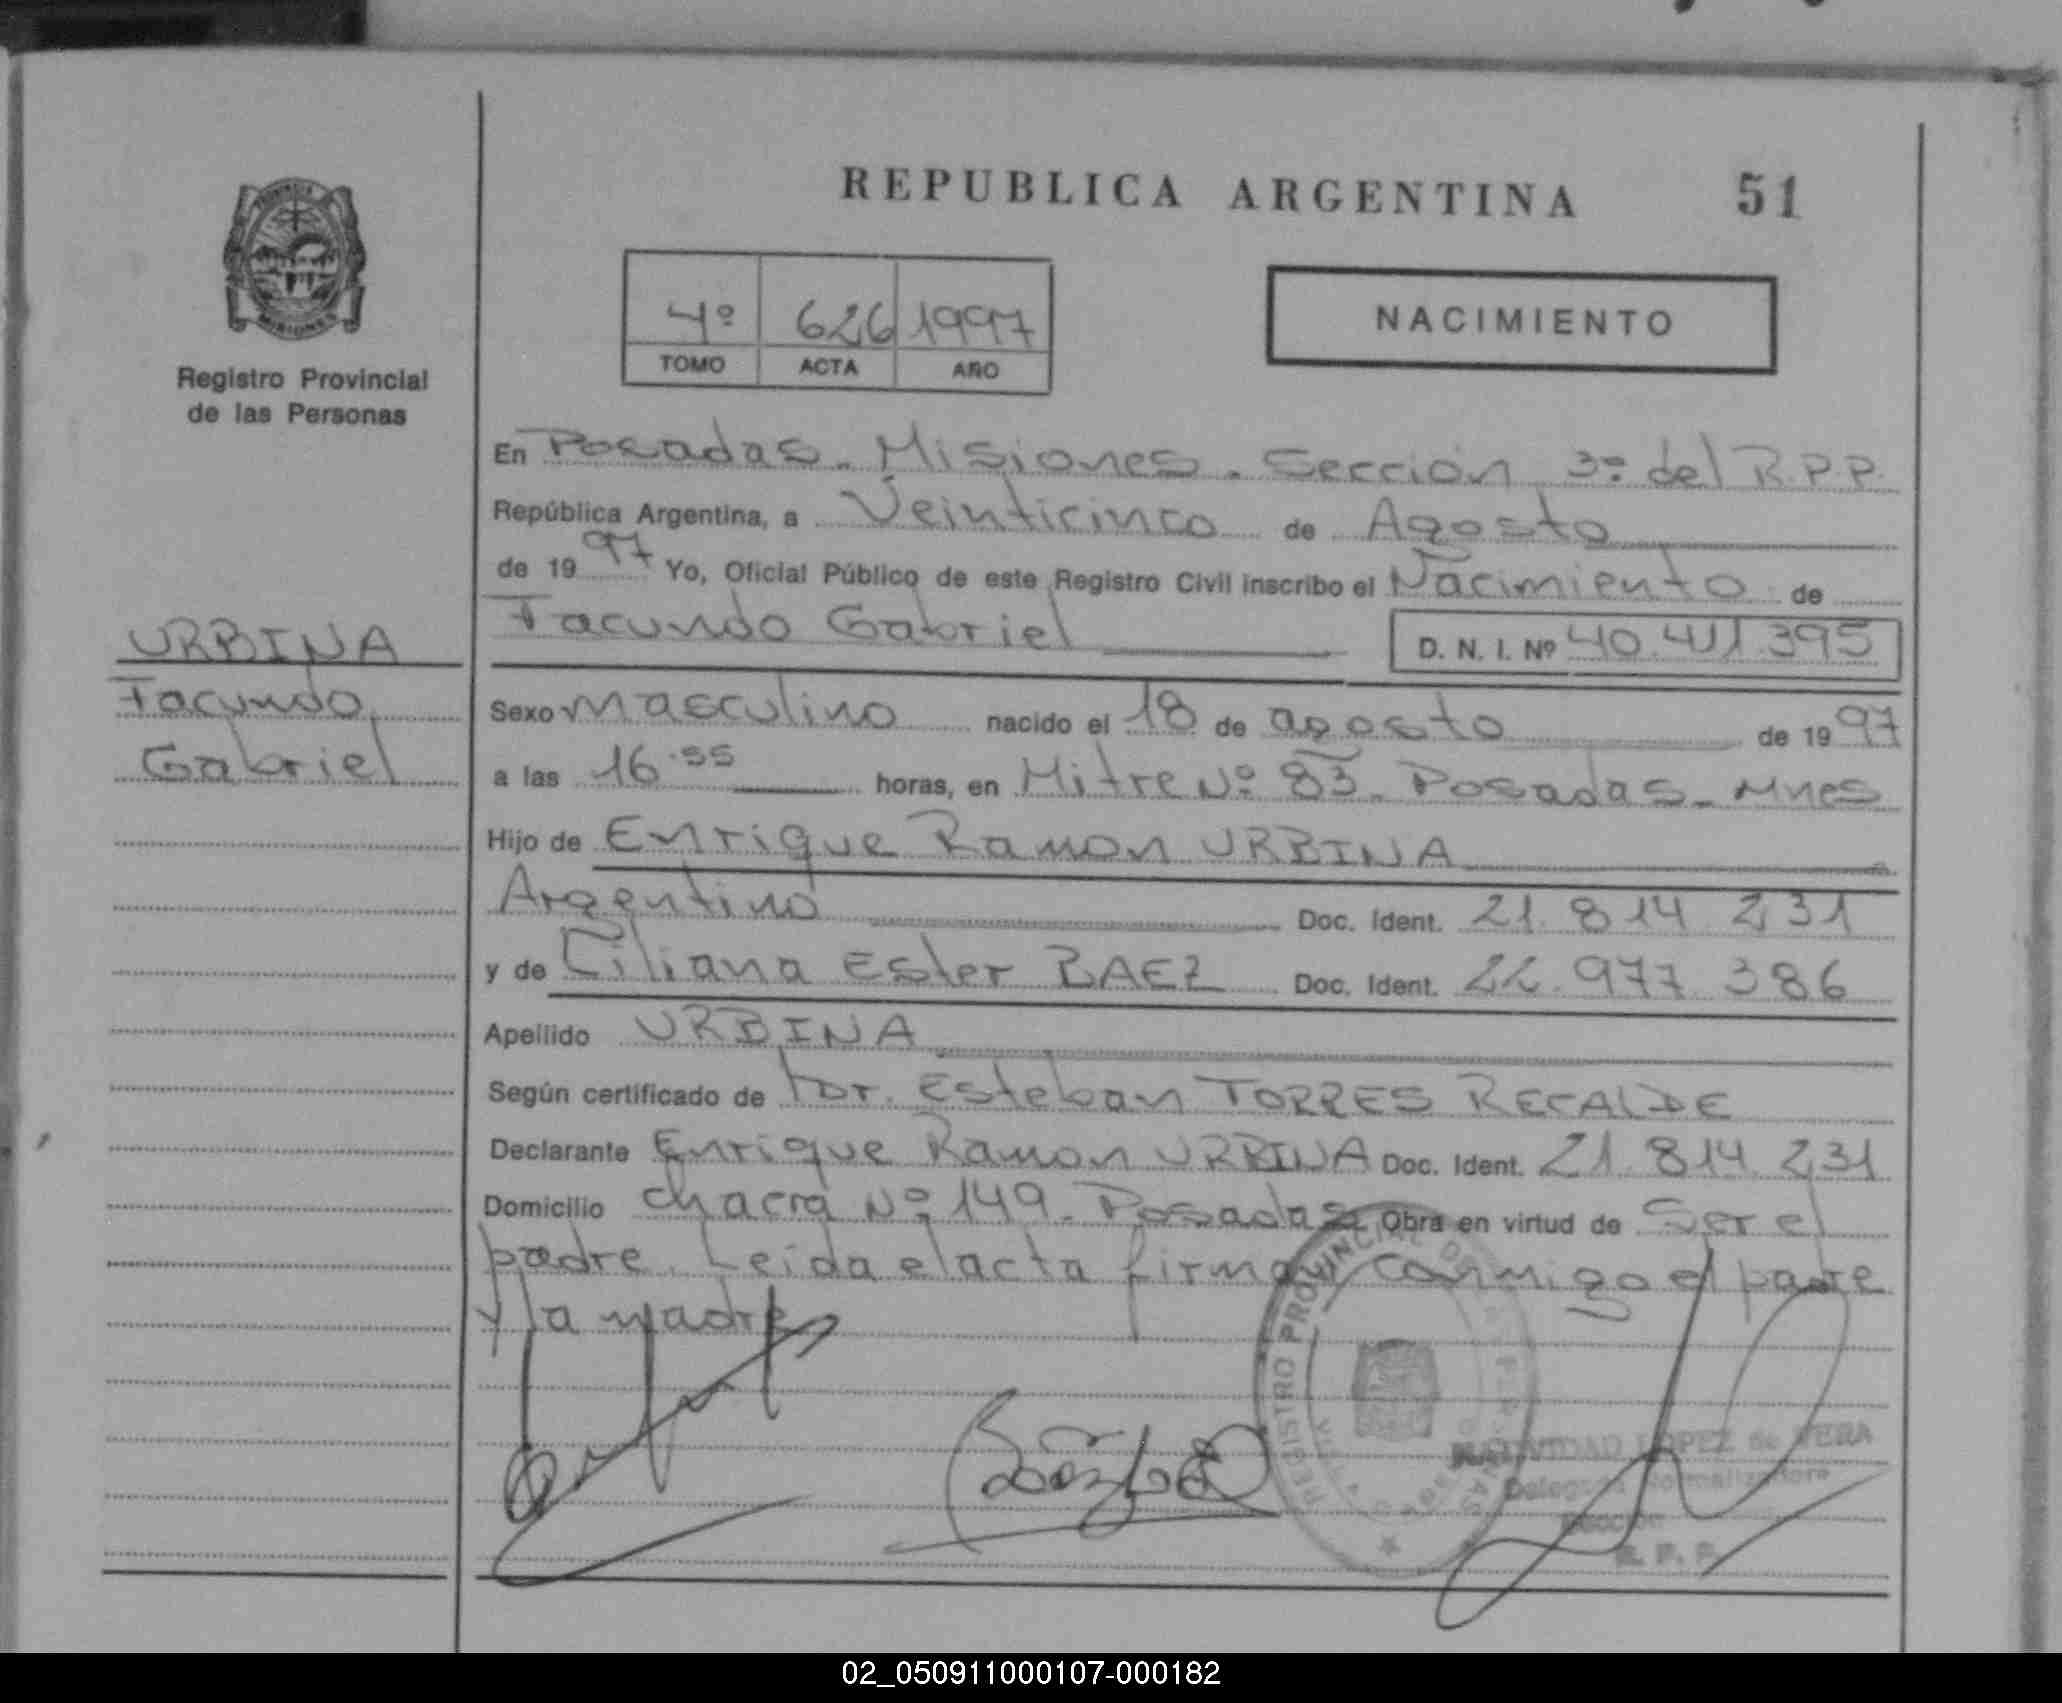 REPUBLICA ARGENTINA 51
PROVINCIA
MISIONES
Registro Provincial
de las Personas
4º 626 1997
TOMO ACTA AÑO
NACIMIENTO
En Posadas - Misiones - Sección 3º del R.P.P.
República Argentina, a Veinticinco de Agosto
de 1997 Yo, Oficial Público de este Registro Civil inscribo el Nacimiento de
Facundo Gabriel D. N. I. Nº 40.411.395
URBINA
Facundo
Gabriel
Sexo masculino nacido el 18 de agosto de 1997
a las 16.55 horas, en Mitre Nº 83 - Posadas - Mnes
Hijo de Enrique Ramon URBINA
Argentino Doc. Ident. 21.814.231
y de Liliana Ester BAEZ Doc. Ident. 22.977.386
Apellido URBINA
Según certificado de Dr. Esteban TORRES RECALDE
Declarante Enrique Ramon URBINA Doc. Ident. 21.814.231
Domicilio chacra Nº 149 - Posadas Obra en virtud de Ser el
padre. Leida el acta firman conmigo el padre
y la madre
REGISTRO PROVINCIAL DE LAS PERSONAS
NATIVIDAD LOPEZ de VERA
Delegada Normalizadora
Sección
R. P. P.
02_050911000107-000182